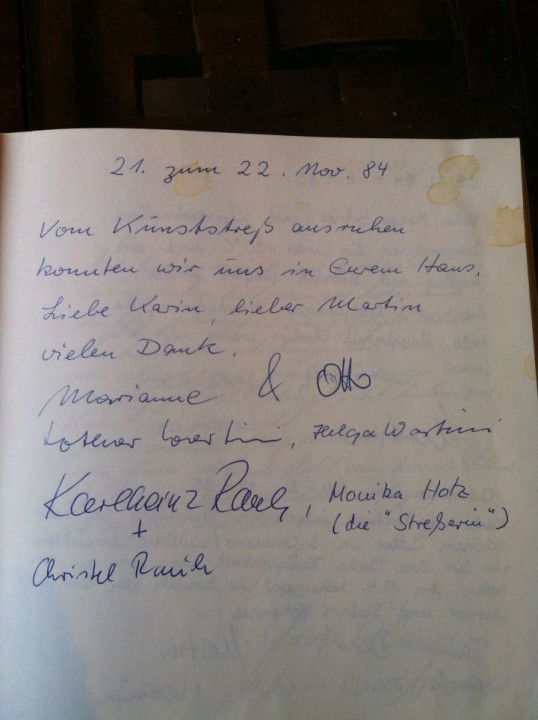 21. zum 22. Nov. 84
Vom Kunststreß ausruhen
konnten wir uns in Eurem Haus.
Liebe Karin, lieber Martin
vielen Dank.
Marianne & Otto
Lothar Wartini, Helga Wartini
Karlheinz Rauh, Monika Hotz
(die "Streßerin")
+
Christel Rauh